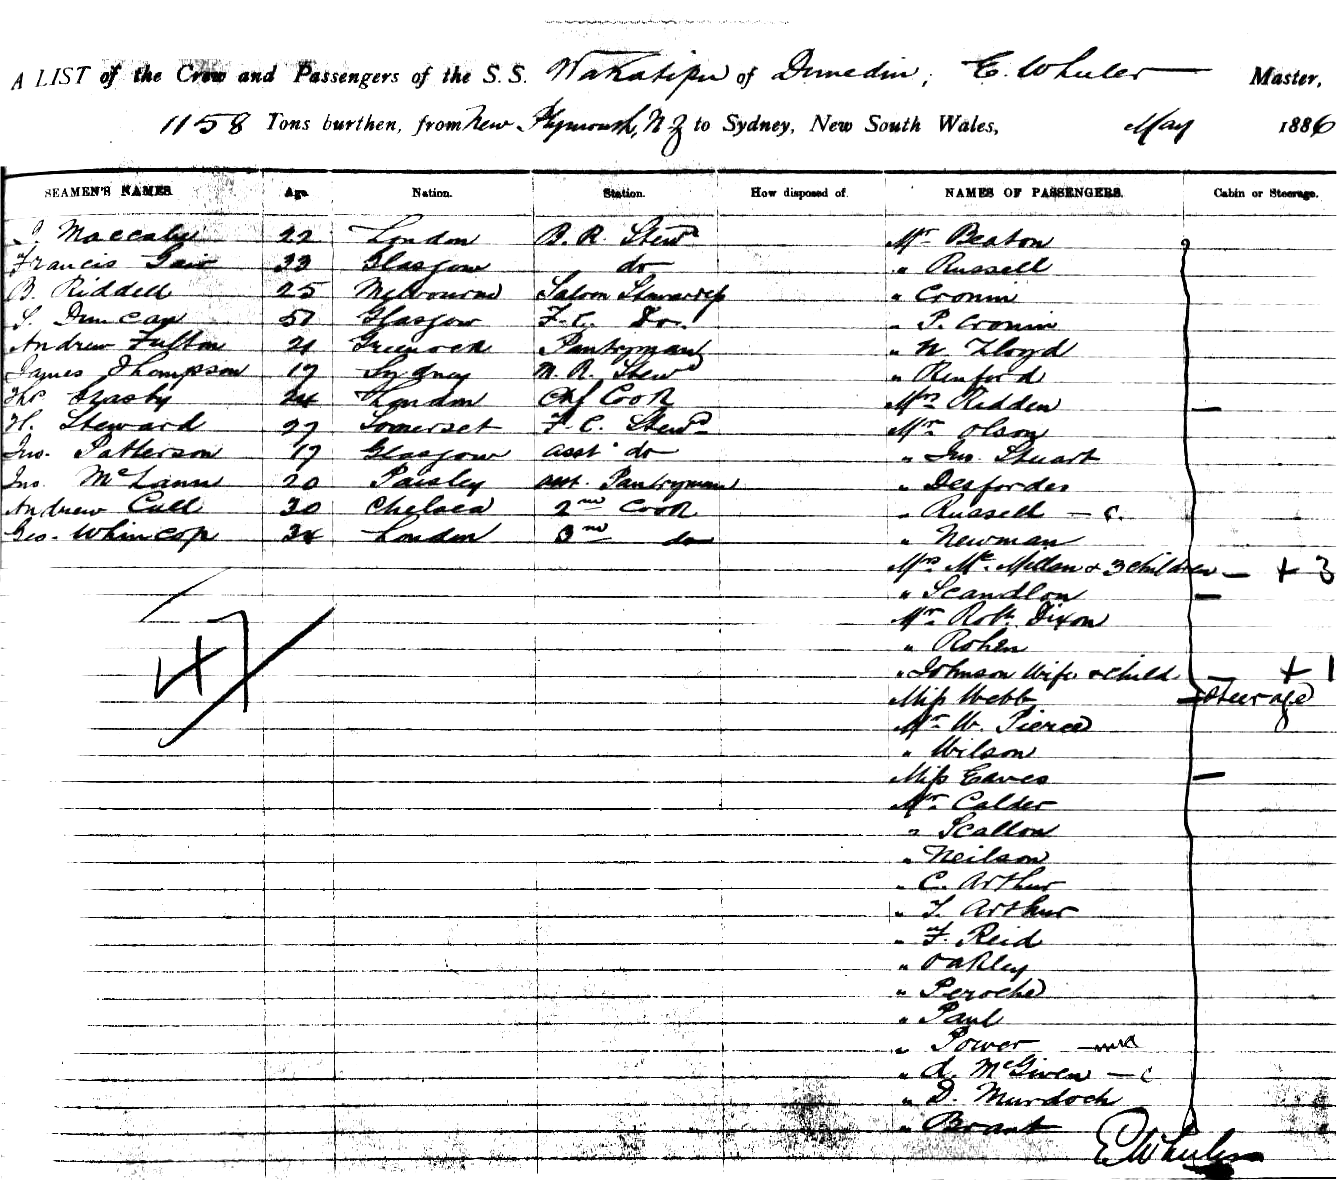 A LIST of the Crew and Passengers of the S.S. Wakatipu of Dunedin, E. Wheeler Master,
1158 Tons burthen, from New Plymouth, NZ to Sydney, New South Wales, May 1886
SEAMEN'S NAMES. Age. Nation. Station. How disposed of. NAMES OF PASSENGERS. Cabin or Steerage.
Maccaby 22 London B. R. Stewd Mr Beaton
Francis Gair 33 Glasgow do " Russell
B. Riddell 25 Melbourne Saloon Stewardess " Cronin
S. Duncan 51 Glasgow F. C. Do. " P. Cronin
Andrew Fulton 21 Greenock Pantryman " W Lloyd
James Thompson 19 Sydney M. R. Stewd " Renford
Thos Grasby 24 London Chf Cook Mrs Ridden —
H. Steward 27 Somerset F. C. Stewd Mr Olson
Jno. Patterson 19 Glasgow asst do " Jno. Stuart
Jno. McLann 20 Paisley asst Pantryman " Desfordes
Andrew Cull 30 Chelsea 2nd Cook " Russell — c.
Geo. Whincop 34 London 3rd do " Newman
Mrs McMillan & 3 children — + 3
" Scandlon —
47 Mr Robt Dixon
" Rohen
" Johnson Wife & Child — + 1
Miss Webb — Steerage
Mr W. Pierce
" Wilson
Miss Eaves —
Mr Calder
" Scallon
" Neilson
" C. Arthur
" T. Arthur
" F. Reid
" Oakley
" Peroche
" Paul
" Power
" A. McGiven — c
" D. Murdoch
" Brant
E Wheeler